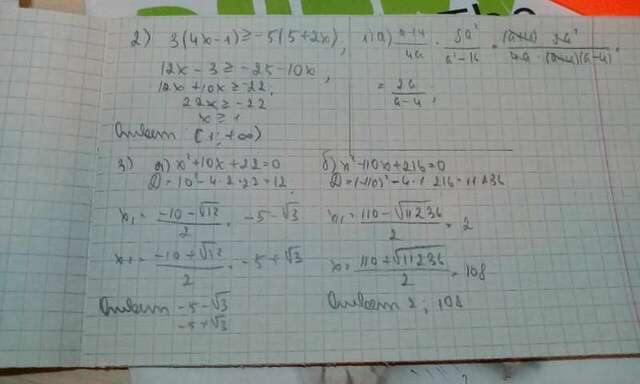 2) 3(4x-1) ≥ -5(5+2x),
12x - 3 ≥ -25-10x,
12x + 10x ≥ -22,
22x ≥ -22
x ≥ 1
Ответ: [1; +∞)
1) a) a+4/4a · 8a²/a²-16 =
= 2a/a-4;
3) a) x²+10x+22=0
D=10²-4·2·22=12
x₁= -10-√12/2 = -5-√3
-10+√12/2 = -5+√3
Ответ -5-√3
-5+√3
б) x²-110x+216=0
D=(-110)²-4·1·216=11236
x₁= 110-√11236/2 = 2
x= 110+√11236/2 = 108
Ответ 2; 108